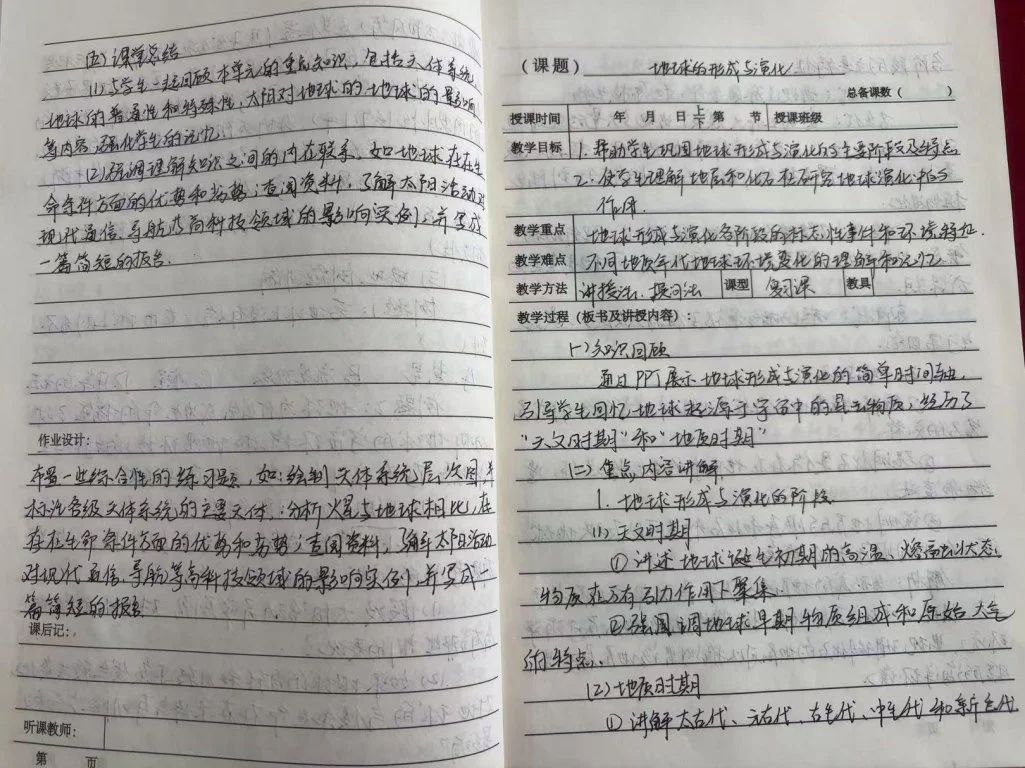 (五)课堂总结
(1)与学生一起回顾本单元的重点知识,包括天体系统
地球的普通性和特殊性,太阳对地球的地球的影响
等内容,强化学生的记忆.
(2)强调理解知识之间的内在联系,如地球在存在生
命条件方面的优势和劣势;查阅资料,了解太阳活动对
现代通信、导航等高科技领域的影响实例,并写成
一篇简短的报告.
作业设计:
布置一些综合性的练习题,如:绘制天体系统层次图,并
标注各级天体系统的主要天体.;分析火星与地球相比,在
存在生命条件方面的优势和劣势;查阅资料,了解太阳活动
对现代通信、导航等高科技领域的影响实例,并写成一
篇简短的报告
课后记:
听课教师:
第 页
(课题) 地球的形成与演化
总备课数( )
授课时间 年 月 日 上 第 节 授课班级
教学目标 1.帮助学生巩固地球形成与演化的主要阶段及特点
2.使学生理解地层和化石在研究地球演化中的
作用.
教学重点 地球形成与演化各阶段的标志性事件和环境特征.
教学难点 不同地质年代地球环境变化的理解和记忆.
教学方法 讲授法、提问法 课型 复习课 教具
教学过程(板书及讲授内容):
(一)知识回顾
通过PPT展示地球形成与演化的简单时间轴,
引导学生回忆地球起源于宇宙中的星云物质,经历了
“天文时期”和“地质时期”
(二)焦点内容讲解
1.地球形成与演化的阶段
(1)天文时期
①讲述地球诞生初期的高温、熔融状态,
物质在万有引力作用下聚集.
②强调地球早期物质组成和原始大气
的特点.
(2)地质时期
①讲解太古代、元古代、古生代、中生代和新生代